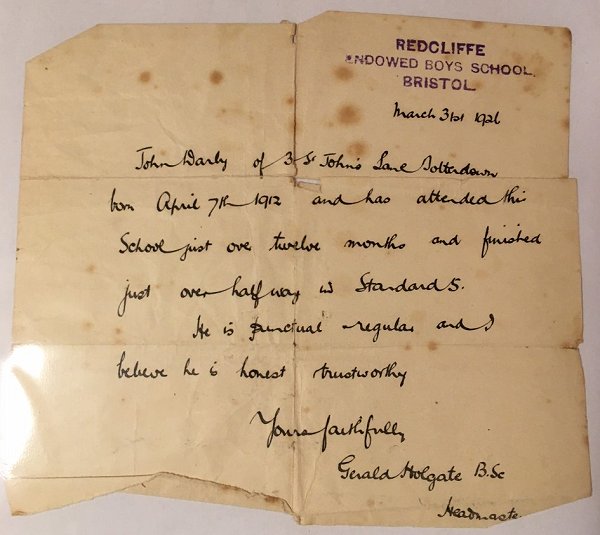 REDCLIFFE
ENDOWED BOYS SCHOOL
BRISTOL
March 31st 1926
John Darby of 3 St John's Lane Totterdown
born April 7th 1912 and has attended this
School just over twelve months and finished
just over half way in Standard 5.
He is punctual regular and I
believe he is honest trustworthy
Yours faithfully
Gerald Holgate B.Sc
Headmaste